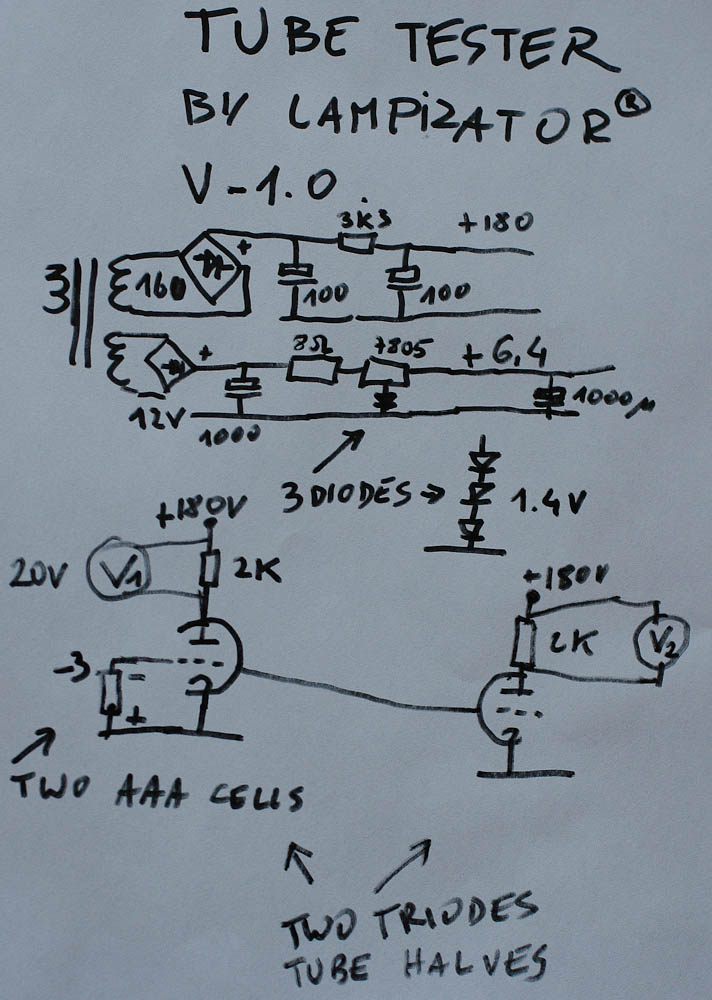 TUBE TESTER
BY LAMPIZATOR®
V-1.0.
3K3 +180
160 + 100 100
8Ω 7805 +6,4
+
12V 1000 1000μ
3 DIODES → 1.4V
+180V
20V V1 2K
+180V
2K V2
-3 -
+
TWO AAA CELLS
TWO TRIODES
TUBE HALVES